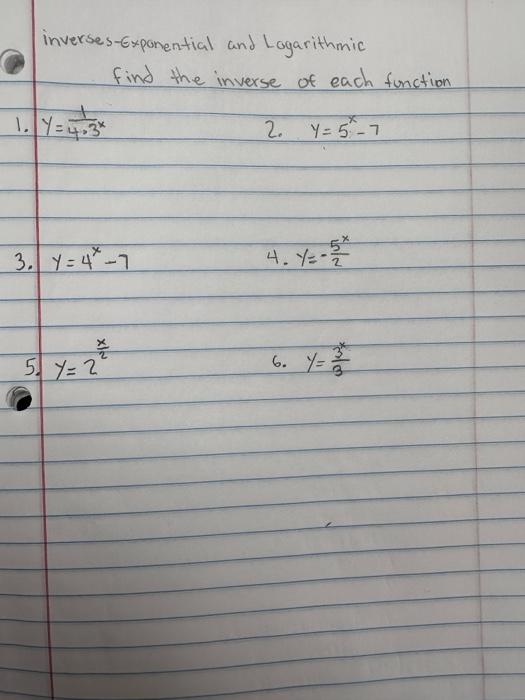 inverses-Exponential and Logarithmic
find the inverse of each function
1. y = 1/(4·3^x)
2. y = 5^x - 7
3. y = 4^x - 7
4. y = -5^x/2
5. y = 2^(x/2)
6. y = 3^x/3